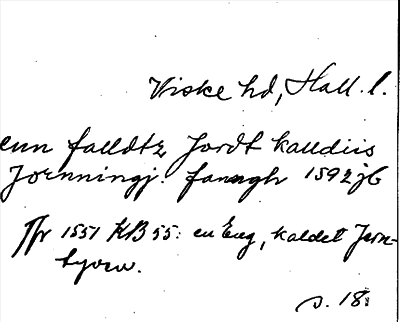 Viske hd, Hall. l.
enn falldtz Jordt kalldiis
Jornningj. fanngh 1592 jb
Jfr 1551 KB 55: en Eng, kaldet Jern-
bjorn.
s. 18: